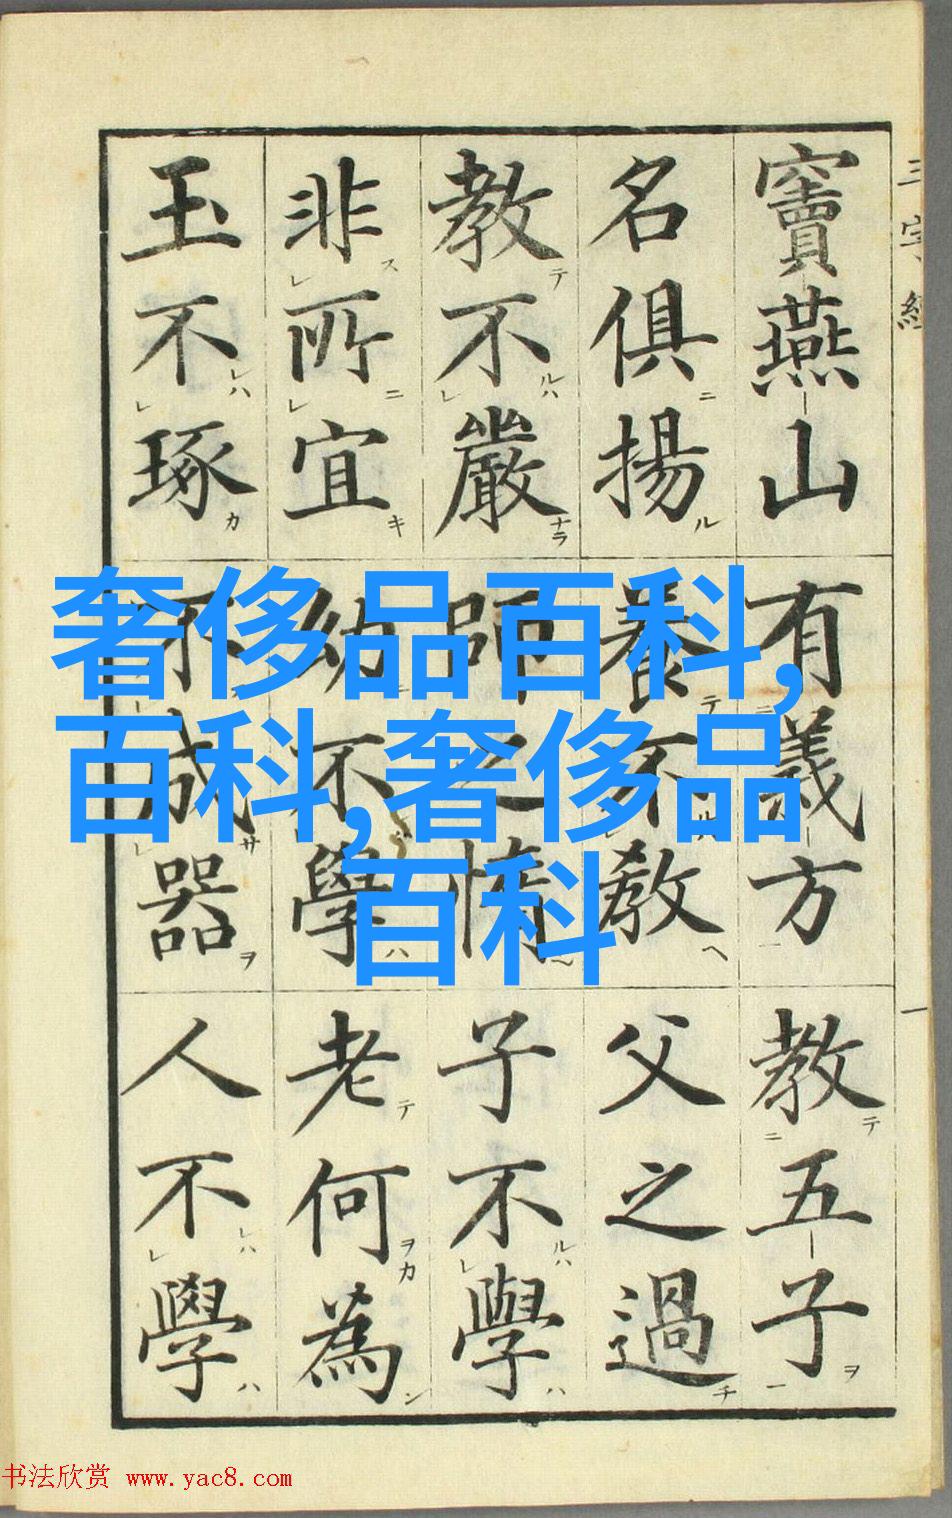 三字經
一
竇燕山有義方教五子
名俱揚養不教父之過
教不嚴師之惰子不學
非所宜幼不學老何為
玉不琢不成器人不學
奢侈品百科,
百科,奢侈品
百科
书法欣赏 www.yac8.com